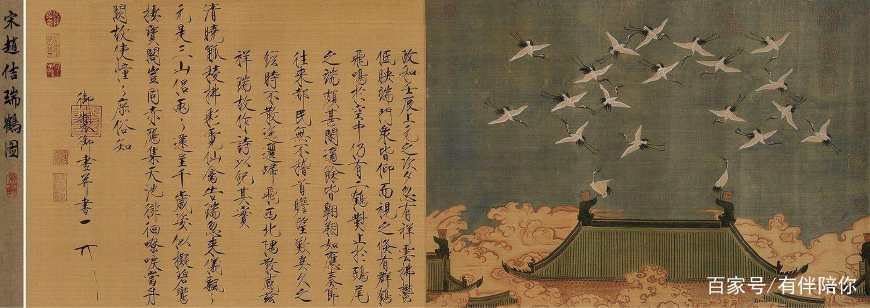 政和壬辰上元之次夕忽有祥雲拂鬱
低映端門衆皆仰而視之倏有群鶴
飛鳴於空中仍有二鶴對止於鴟尾
之端頗甚閒適餘皆翱翔如應奏節
往來都民無不稽首瞻望歎異久之
經時不散迤邐歸飛西北隅散感茲
祥瑞故作詩以紀其實
清曉觚稜拂彩霓仙禽告瑞忽來儀飄々
元是三山侶兩々還呈千歲姿似擬碧鸞
棲寶閣豈同赤鴈集天池徘徊嘹唳當丹
闕故使憧々庶俗知
御製御畫并書
宋趙佶瑞鶴圖
百家号/有伴陪你